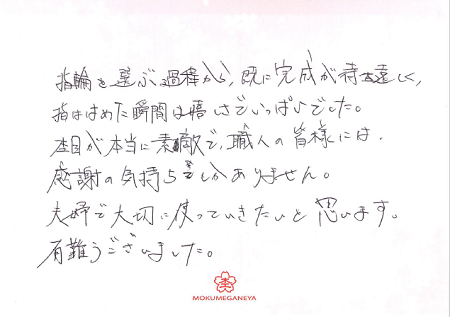 指輪を選ぶ過程から、既に完成が待ち遠しく、
指にはめた瞬間は嬉しさでいっぱいでした。
杢目が本当に素敵で、職人の皆様には、
感謝の気持ちでしかありません。
夫婦で大切に使っていきたいと思います。
有難うございました。
杢
MOKUMEGANEYA